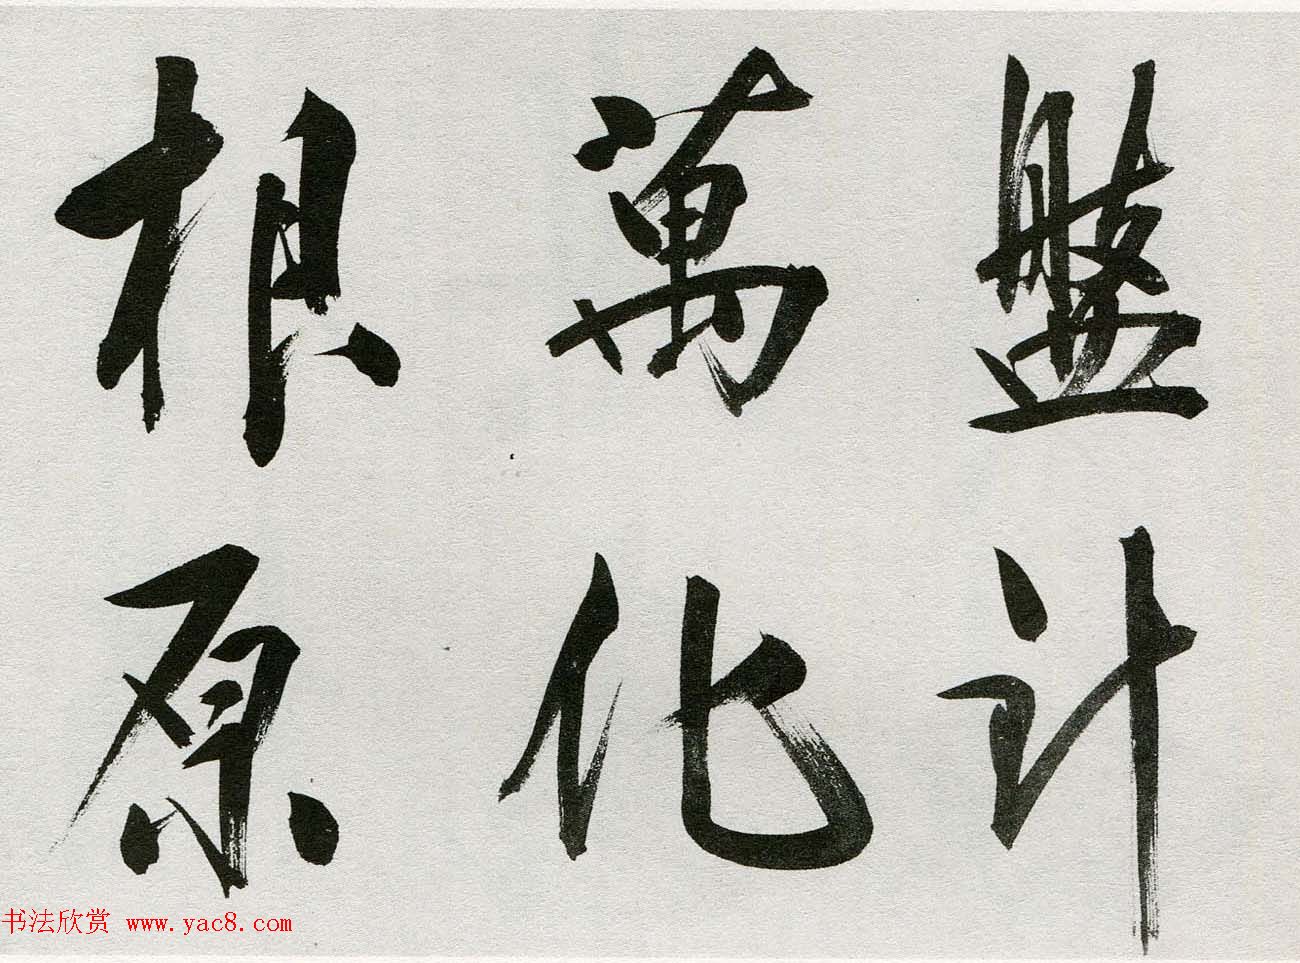 盤針
萬化
根原
书法欣赏 www.yac8.com